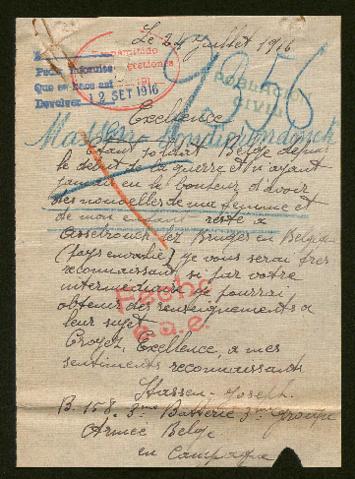 Le 24 Juillet 1916
Transmitido
Pedir Informes
Que se hace así
Devolver
12 SET 1916
9356
POBLACION
CIVIL
Excellence
Étant soldat Belge depuis
le début de la guerre et n'ayant
jamais eu le bonheur d'avoir
des nouvelles de ma femme et
de mon resté à
Assebrouck lez Bruges en Belgique
(pays envahi) je vous serai très
reconnaissant si par votre
intermédiaire je pourrai
obtenir des renseignements à
leur sujet
Fecho
e.a.e.
Croyez, Excellence, a mes
sentiments reconnaissants
Stassen Joseph.
B. 158. 3me Batterie 3me Groupe
Armée Belge
en Campagne